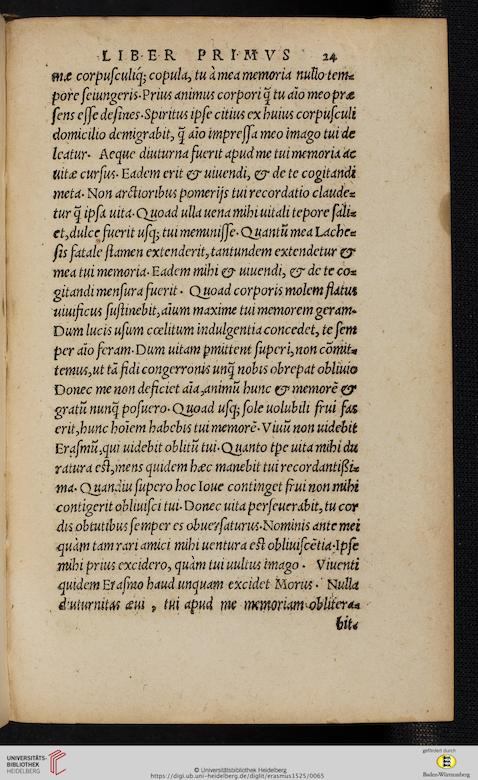 LIBER PRIMVS 24
mæ corpuſculiq́; copula, tu à mea memoria nullo tem=
pore ſeiungeris. Prius animus corpori q̃ tu aĩo meo præ
ſens eſſe deſines. Spiritus ipſe citius ex huius corpuſculi
domicilio demigrabit, q̃ aĩo impreſſa meo imago tui de
leatur. Aeque diuturna fuerit apud me tui memoria ac
uitæ curſus. Eadem erit & uiuendi, & de te cogitandi
meta. Non arctioribus pomerijs tui recordatio claude=
tur q̃ ipſa uita. Quoad ulla uena mihi uitali tepore ſali=
et, dulce fuerit uſq; tui meminiſſe. Quantũ mea Lache=
ſis fatale ſtamen extenderit, tantundem extendetur &
mea tui memoria. Eadem mihi & uiuendi, & de te co=
gitandi menſura fuerit. Quoad corporis molem flatus
uiuificus ſuſtinebit, aĩum maxime tui memorem geram.
Dum lucis uſum cœlitum indulgentia concedet, te ſem
per aĩo feram. Dum uitam ꝑmittent ſuperi, non cõmit=
temus, ut tã fidi congerronis unq̃ nobis obrepat obliuio
Donec me non deficiet aĩa, animũ hunc & memorẽ &
gratũ nunq̃ poſuero. Quoad uſq; ſole uolubili frui fas
erit, hunc hoĩem habebis tui memorẽ. Viuũ non uidebit
Eraſmũ, qui uidebit oblitũ tui. Quanto tp̃e uita mihi du
ratura eſt, mens quidem hæc manebit tui recordantiſsi=
ma. Quandiu ſupero hoc Ioue continget frui non mihi
contigerit obliuiſci tui. Donec uita perſeuerabit, tu cor
dis obtutibus ſemper es obuerſaturus. Nominis ante mei
quàm tam rari amici mihi uentura eſt obliuiſcẽtia. Ipſe
mihi prius excidero, quàm tui uultus imago. Viuenti
quidem Eraſmo haud unquam excidet Morus. Nulla
diuturnitas æui, tui apud me memoriam oblitera=
bit.
UNIVERSITÄTS-
BIBLIOTHEK
HEIDELBERG
© Universitätsbibliothek Heidelberg
https://digi.ub.uni-heidelberg.de/diglit/erasmus1525/0065
gefördert durch
Baden-Württemberg